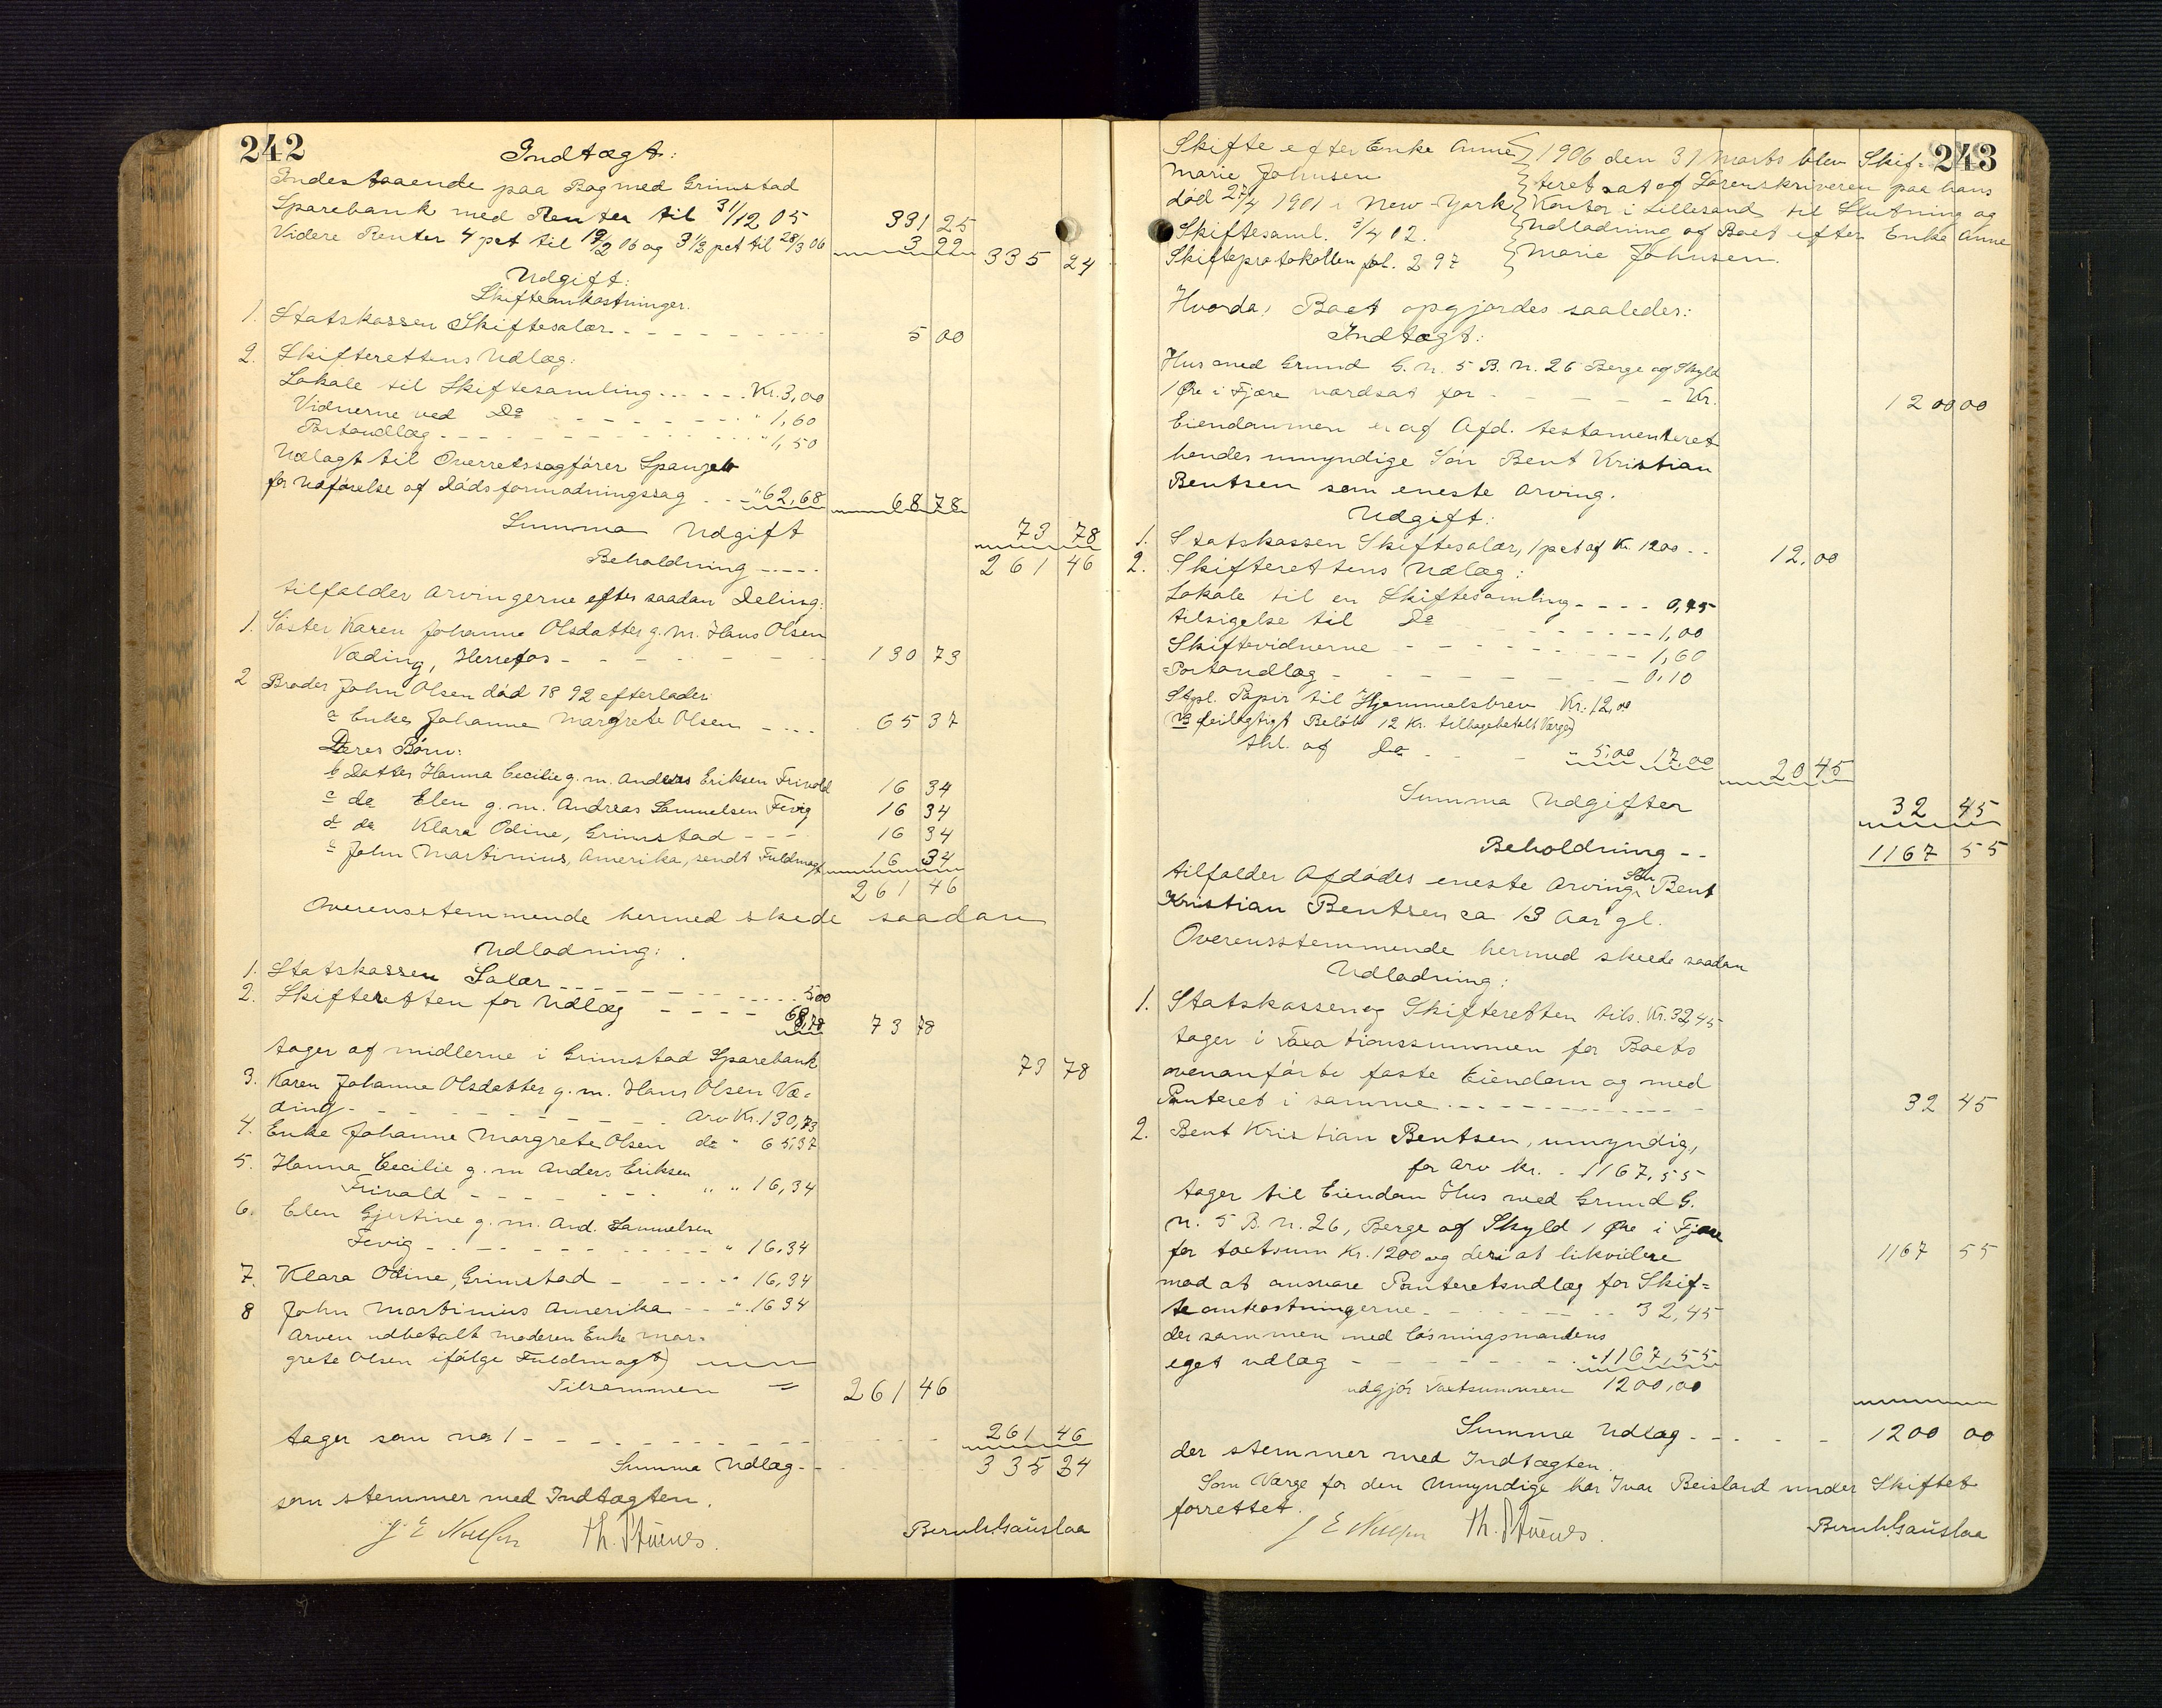 242
Indtægt:
Indestaaende paa Bog med Grimstad
Sparebank med Renter til 31/12 05 331 25
Videre Renter 4 pct til 19/2 06 og 3 1/2 pct til 28/3 06 3 99 335 24
Udgift:
Skifteomkostninger.
1. Statskassen Skiftesalær 5 00
2. Skifterettens Udlæg:
Lokale til Skiftesamling Kr. 3,00
Vidnerne ved Do " 1,60
Portoudlæg " 1,50
Udlagt til Overretssagfører
for Udførelse af Dødsformodningssag " 62,68 68 78
Summa Udgift 73 78
Beholdning 261 46
tilfalder Arvingerne efter saadan Deling:
1. Søster Karen Johanne Olsdatter g. m. Hans Olsen
Væding, Herrefos 130 73
2 Broder John Olsen død 1892 efterlader
a Enke Johanne Margrete Olsen 65 37
Deres Børn:
b Datter Hanna Cecilie g. m. Anders Eriksen Frivold 16 34
c do Elen g. m. Andreas Samuelsen Fevig 16 34
d do Klara Odine, Grimstad 16 34
e John Martinius, Amerika, sendt Fuldmagt 16 34
261 46
Overensstemmende hermed skede saadan
Udlodning:
1. Statskassen Salær 5 00
2. Skifteretten for Udlæg 68,78 73 78
tager af midlerne i Grimstad Sparebank 73 78
3. Karen Johanne Olsdatter g. m. Hans Olsen Væ-
ding Arv Kr. 130,73
4. Enke Johanne Margrete Olsen do " 65,37
5. Hanna Cecilie g. m Anders Eriksen
Frivold " " 16,34
6. Elen Gjertine g. m. And. Samuelsen
Fevig " 16,34
7. Klara Odine, Grimstad " 16,34
8 John Martinius Amerika " 16 34
Arven udbetalt moderen Enke Mar-
grete Olsen ifølge Fuldmagt)
Tilsammen 261 46
tager som no 1 261 46
Summa Udlæg 335 24
som stemmer med Indtægten.
Bernh. Gauslaa
243
Skifte efter Enke Anne
Marie Johnsen
død 27/4 1901 i New-York
Skiftesaml. 3/4 02.
Skifteprotokollen fol. 297
1906 den 31 Marts blev Skif-
teret sat af Sorenskriveren paa hans
Kontor i Lillesand til Slutning og
Udlodning af Boet efter Enke Anne
Marie Johnsen.
Hvorda: Boet opgjordes saaledes:
Indtægt:
Hus med Grund G. n. 5 B. n. 26 Berge af Skyld
1 Øre i Fjære værdsat for Kr. 1200 00
Eiendommen er af Afd. testamenteret
hendes umyndige Søn Bent Kristian
Bentsen som eneste Arving.
Udgift:
1. Statskassen Skiftesalær, 1 pct af Kr. 1200 12,00
2. Skifterettens Udlæg:
Lokale til en Skiftesamling 0,75
tilsigelse til Do 1,00
Skiftevidnerne 1,60
Portoudlæg 0,10
Stpl. Papir til Hjemmelsbrev Kr. 12,00
(NB feilagtigt Beløb 12 Kr. tilbagebetalt Værge)
thl. af Do " 5,00 17,00 20 45
Summa Udgifter 32 45
Beholdning 1167 55
tilfalder Afdødes eneste Arving Søn Bent
Kristian Bentsen ca 13 Aar gl.
Overensstemmende hermed skede saadan
Udlodning:
1. Statskassen og Skifteretten tils. Kr. 32,45
tager i Taxationssummen for Boets
ovenanførte faste Eiendom og med
Panteret i samme 32 45
2. Bent Kristian Bentsen, umyndig,
for Arv Kr. 1167,55
tager til Eiendom Hus med Grund G.
n. 5 B. n. 26, Berge af Skyld 1 Øre i Fjære
for taxtsum Kr. 1200 og deri at likvidere 1167 55
mod at ansvare Panteretsudlæg for Skif-
teomkostningerne 32,45
der sammen med løsningsmandens
eget udlæg " 1167,55
udgjør Taxtsummen 1200,00
Summa Udlæg 1200 00
der stemmer med Indtægten.
Som Værge for den Umyndige har Ivar Beisland under Skiftet
forrettet.
Bernh. Gauslaa